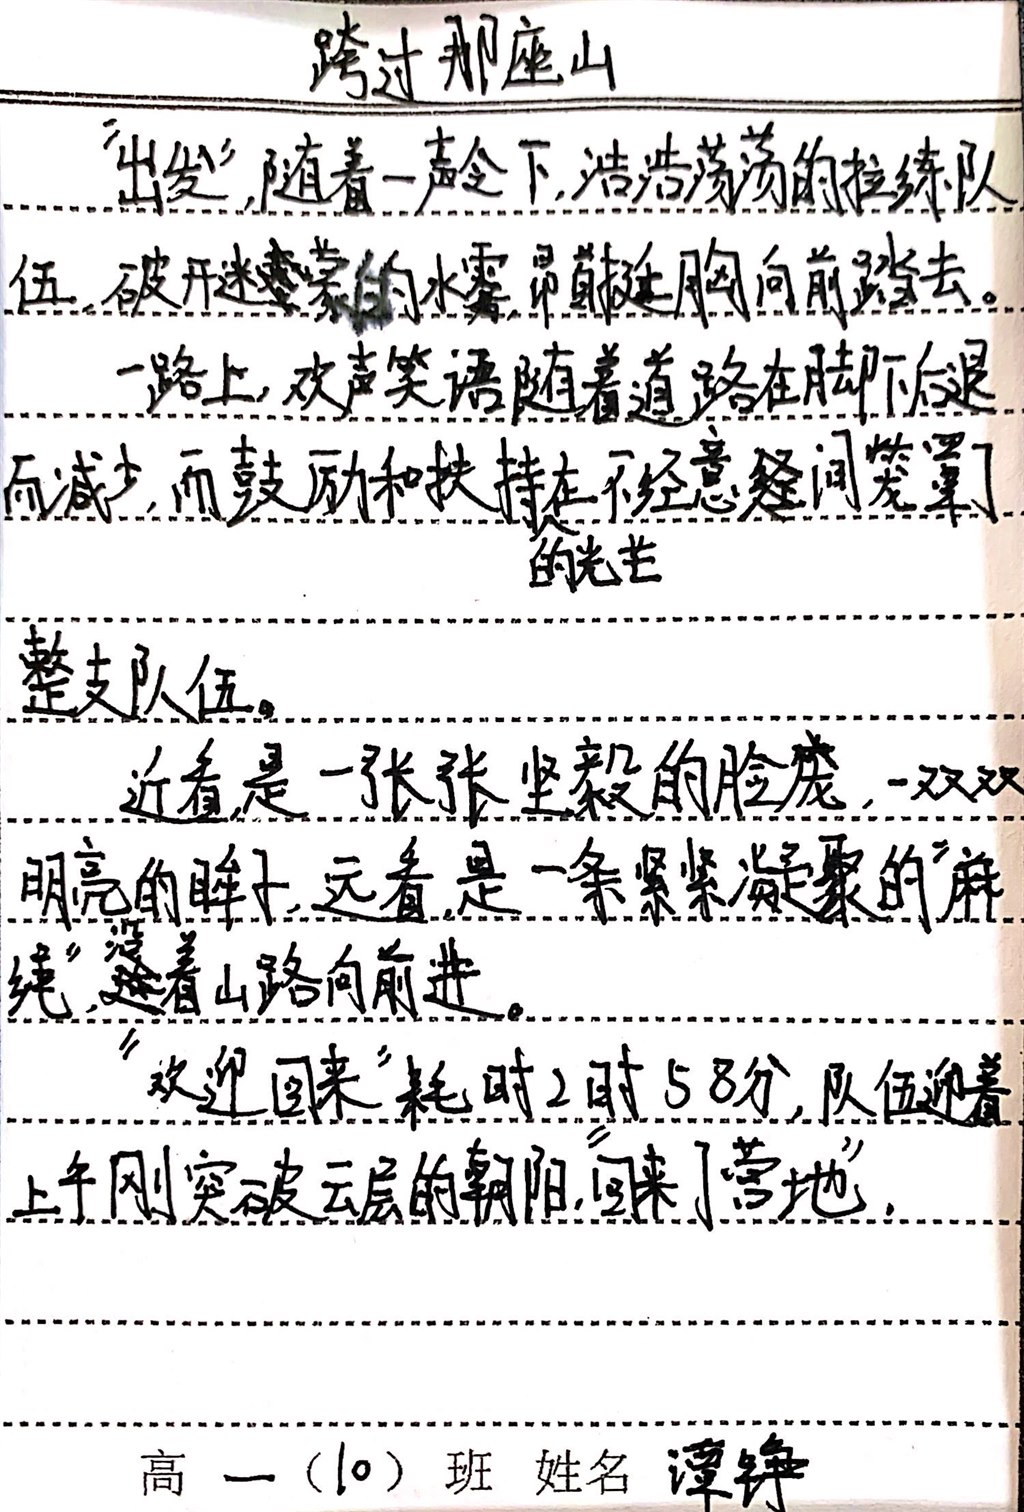 跨过那座山
“出发”,随着一声令下,浩浩荡荡的拉练队
伍,破开迷蒙的水雾,昂首挺胸向前踏去。
一路上,欢声笑语随着道路在脚下后退
而减少,而鼓励和扶持在不经意间笼罩了
的光芒
整支队伍。
近看,是一张张坚毅的脸庞,一双双
明亮的眸子,远看,是一条紧紧凝聚的“麻
绳”,沿着山路向前进。
“欢迎回来”耗时2时58分,队伍迎着
上午刚突破云层的朝阳,“回来了营地”,
高一(10)班 姓名 谭铮